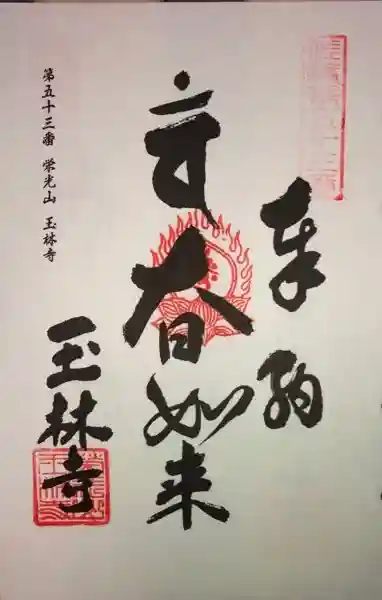 奉納
大日如来
第五十三番 栄光山 玉林寺
玉林寺